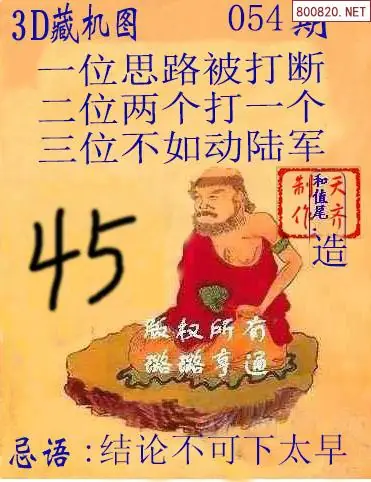 800820.NET
3D藏机图 054期
一位思路被打断
二位两个打一个
三位不如动陆军
天齐
制作
和值尾:
造
45
版权所有
璐璐亨通
忌语:结论不可下太早